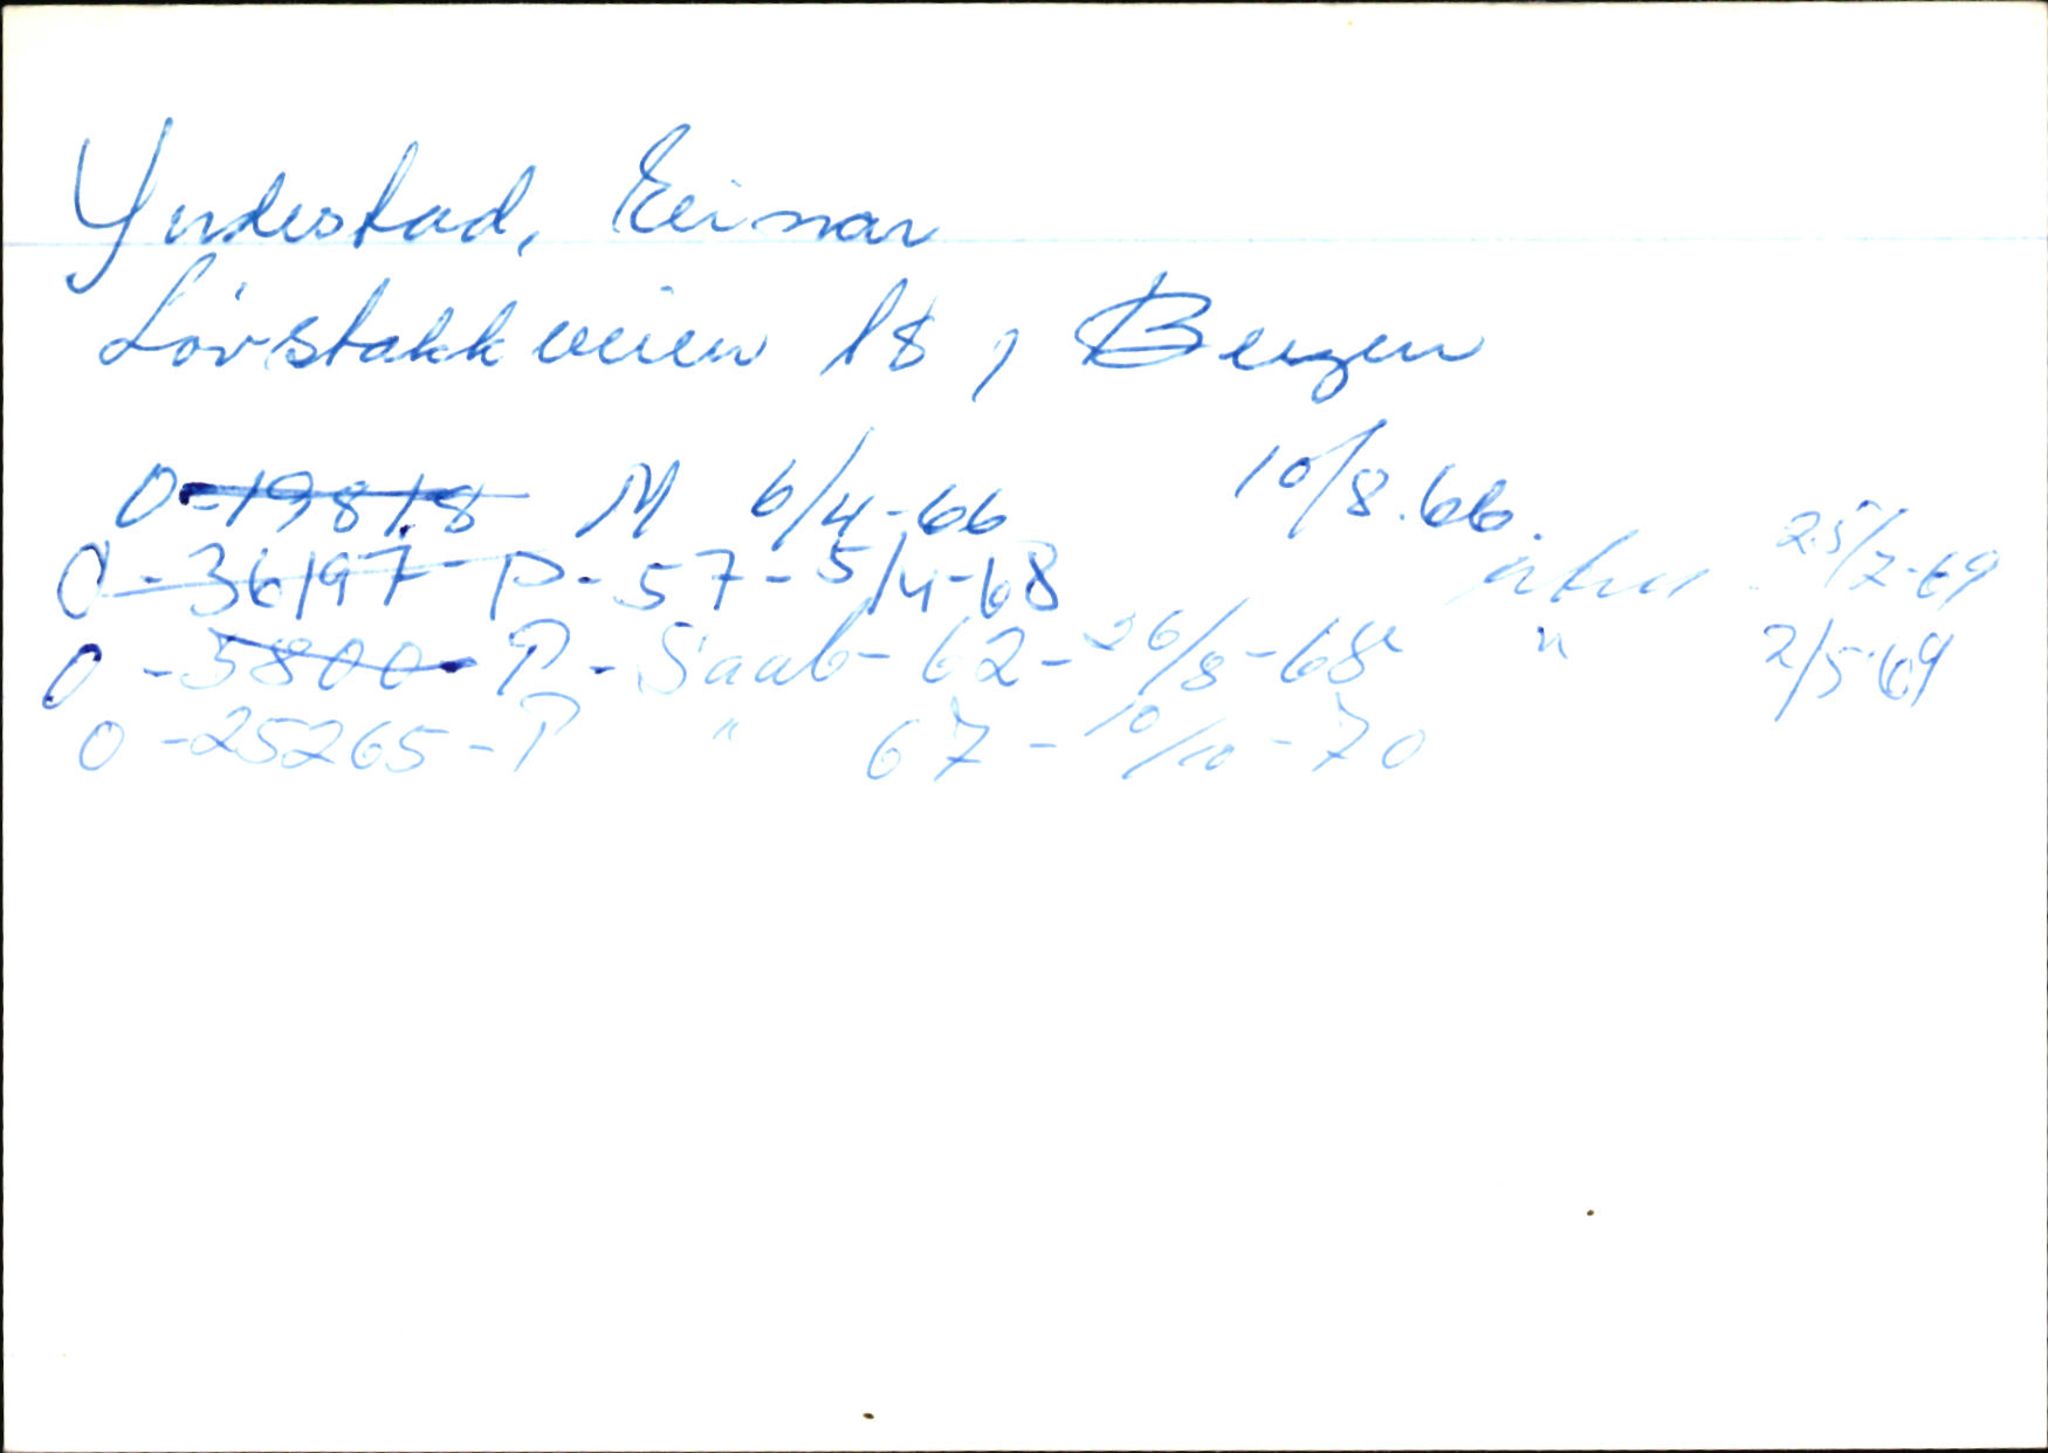 Yndestad, Einar
Lövstakkveien 18, Bergen
O-19818 M 6/4-66 10/8.66.
O-36197-P-57-5/4-68 25/7-69
O-5800-P-Saab-62-26/8-68 " 2/5-69
O-25265-P " 67-10/10-70